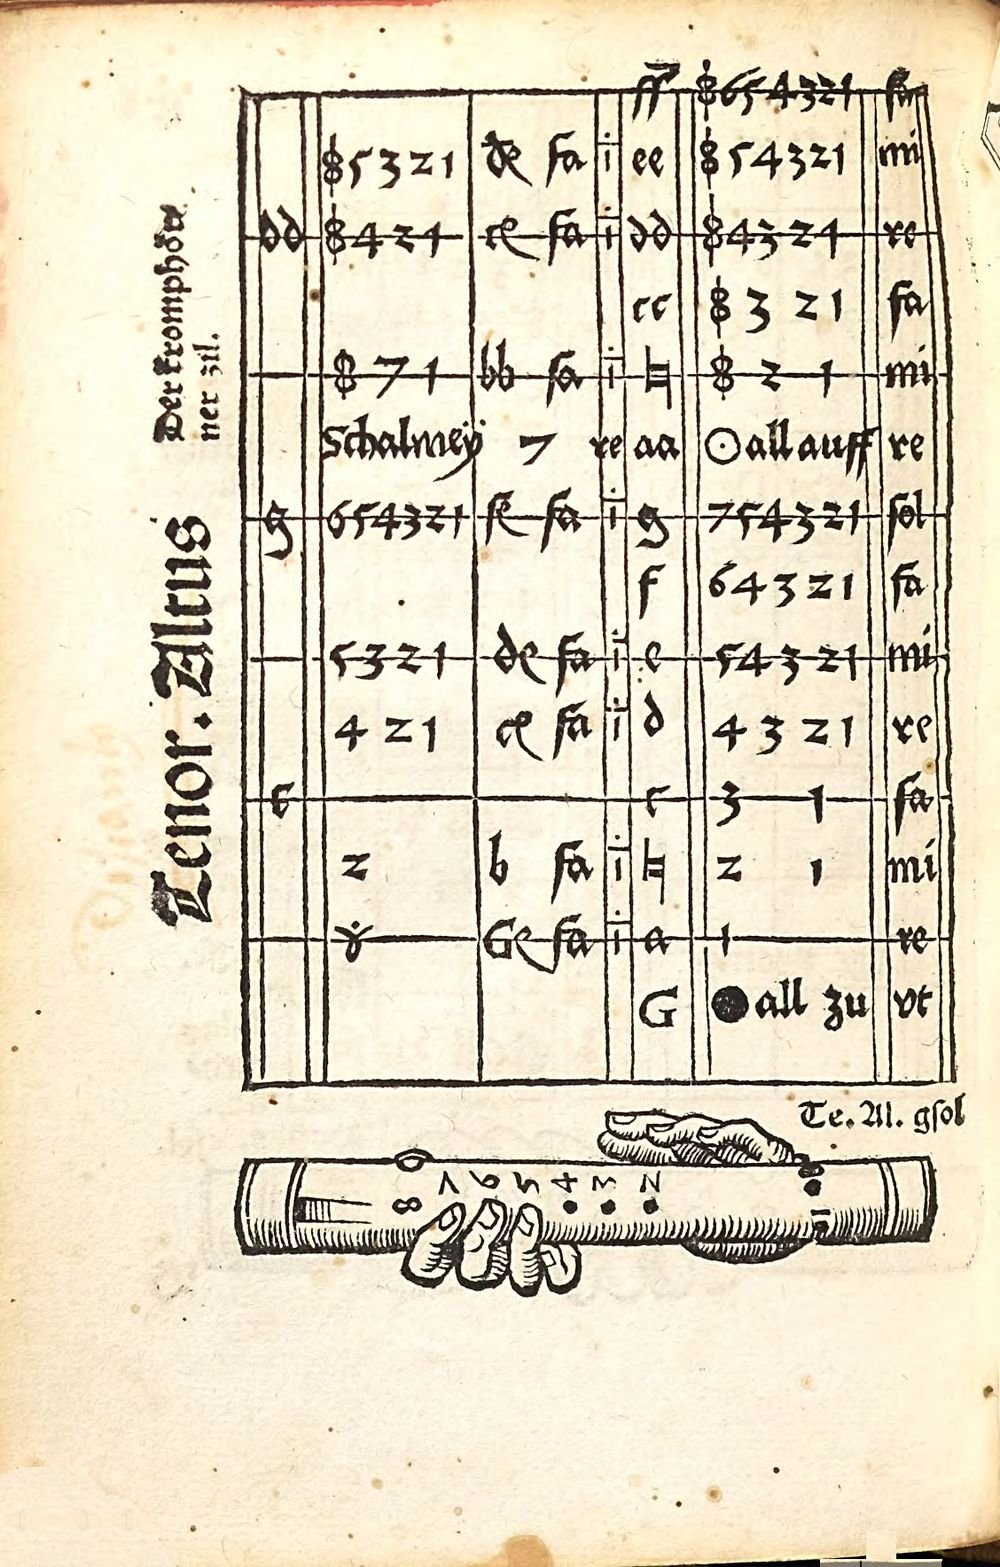 Der kromphörē
ner zil.
Tenor. Altus
ff 8654321 fa
85321 de fa i ee 854321 mi
dd 8421 ce fa i dd 84321 re
cc 8321 fa
871 bb fa i ♮ 821 mi
Schalmey 7 re aa ⊙ all auff re
g 654321 fe fa i g 754321 sol
f 64321 fa
5321 de fa i e 54321 mi
421 ce fa i d 4321 re
c c 3 1 fa
2 b fa i ♮ 2 1 mi
Ge fa i a 1 re
G ● all zu vt
Te. Al. gsol
8 7 6 5 4 3 2 1